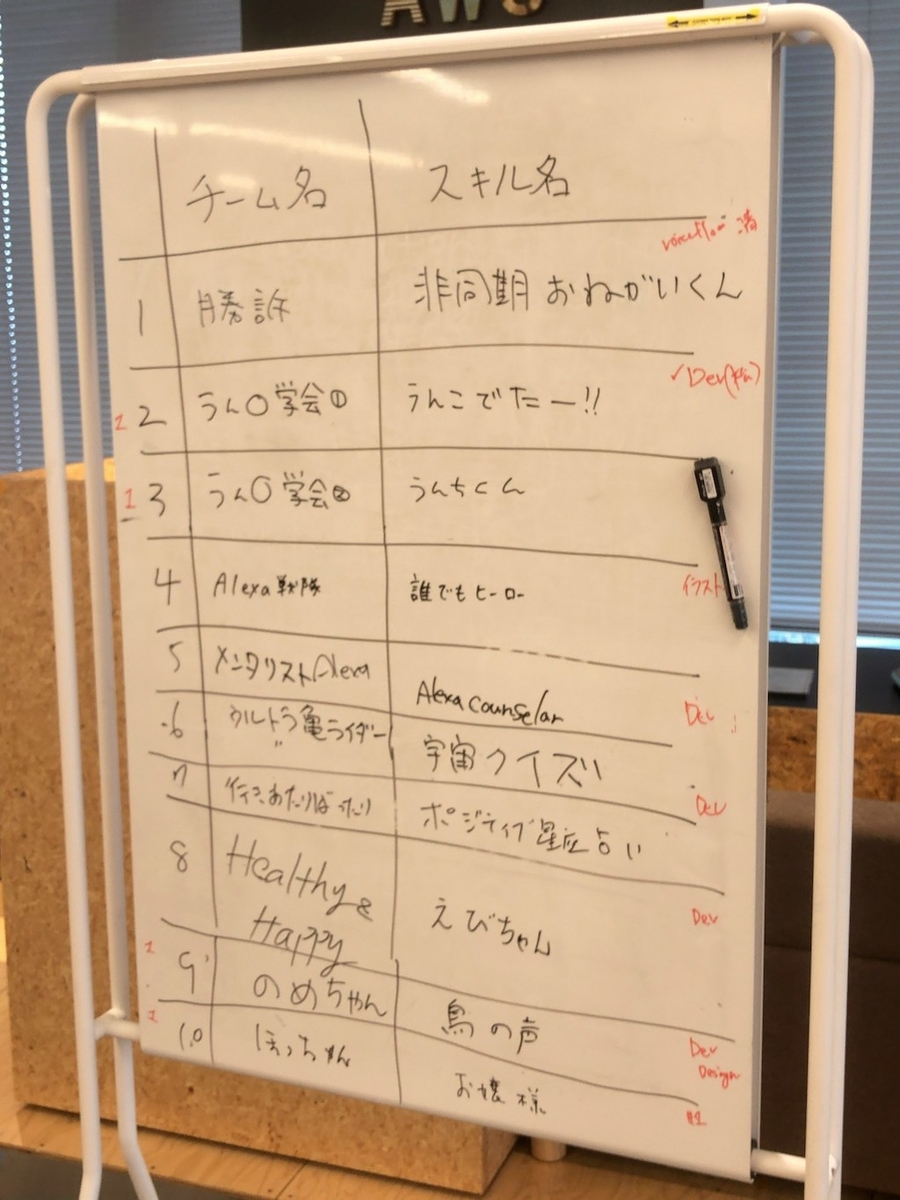 AWS
チーム名 スキル名
voiceflow 済
1 勝訴 非同期おねがいくん
✓Dev
1 2 うん〇学会① うんこでたー!!
1 3 うん〇学会② うんちくん
4 Alexa戦隊 誰でもヒーロー イラスト
5 メンタリストAlexa Alexa counselar Dev
6 ウルトラ亀ライダー 宇宙クイズ Dev
7 行きあたりばったり ポジティブ星座占い
8 Healthy & えびちゃん Dev
Happy
1 9 のめちゃん 鳥の声 Dev
Design
1 10 ぼっちゃん お嬢様